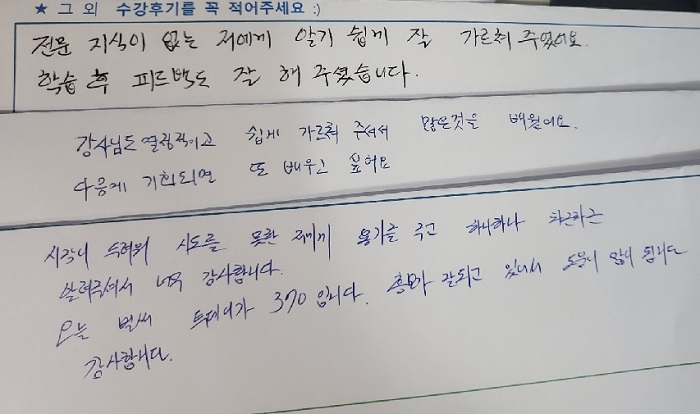 ★ 그 외 수강후기를 꼭 적어주세요 :)
전문 지식이 없는 저에게 알기 쉽게 잘 가르쳐 주었어요.
학습 후 피드백도 잘 해 주셨습니다.
강사님도 열정적이고 쉽게 가르쳐 주셔서 많은것을 배웠어요.
다음에 기회되면 또 배우고 싶어요
시작이 두려워 시도를 못한 저에게 용기를 주고 하나하나 차근차근
알려주셔서 너무 감사합니다.
오늘 벌써 투데이가 370입니다. 홍보가 잘되고 있어서 도움이 많이 됩니다
감사합니다.